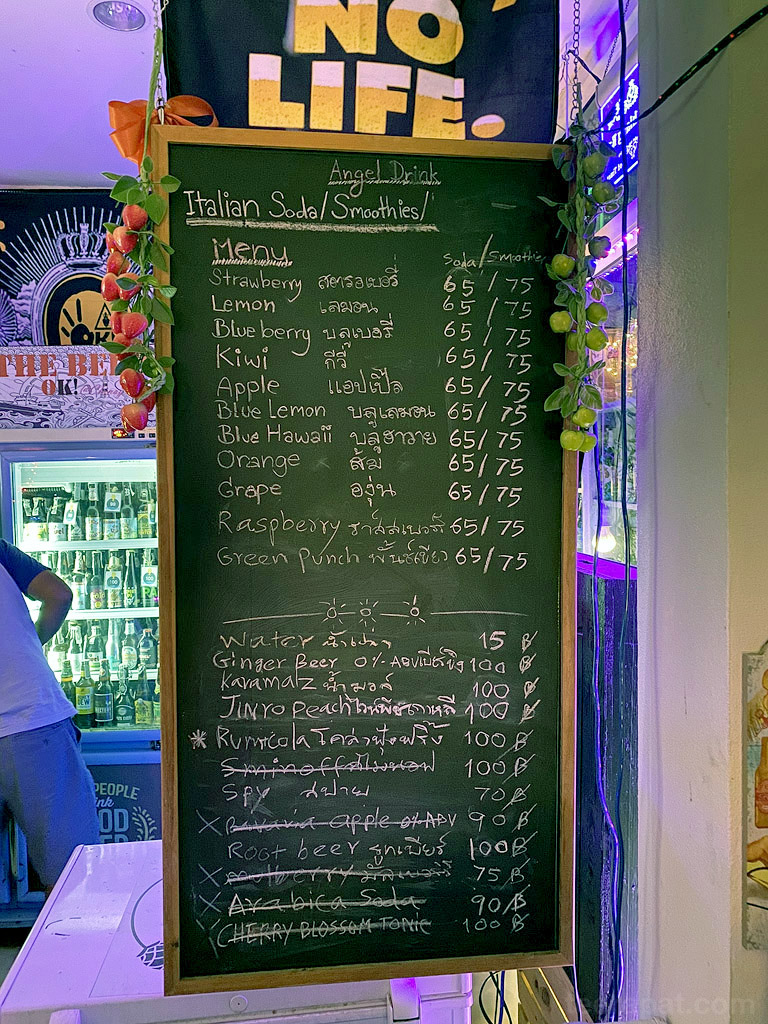 NO
LIFE.
Angel Drink
Italian Soda/Smoothies/
Menu Soda/Smoothies
Strawberry สตรอเบอรี่ 65/75
Lemon เลมอน 65/75
Blueberry บลูเบอรี่ 65/75
Kiwi กีวี่ 65/75
Apple แอปเปิ้ล 65/75
Blue Lemon บลูเลมอน 65/75
Blue Hawaii บลูฮาวาย 65/75
Orange ส้ม 65/75
Grape องุ่น 65/75
Raspberry 65/75
Green Punch พั้นซ์เขียว 65/75
Water น้ำเปล่า 15 ฿
Ginger Beer 0% ABV เบียร์ขิง 100 ฿
Kavamalz น้ำมอล์ 100 ฿
Jinro peach 100 ฿
* Rumcola 100 ฿
Sminoff 100 ฿
SPY สปาย 70 ฿
X Bavaria apple 0% ABV 90 ฿
Root beer รูทเบียร์ 100 ฿
X mulberry 75 ฿
X Arabica Soda 90 ฿
CHERRY BLOSSOM TONIC 100 ฿
THE BEE
OK!
PEOPLE